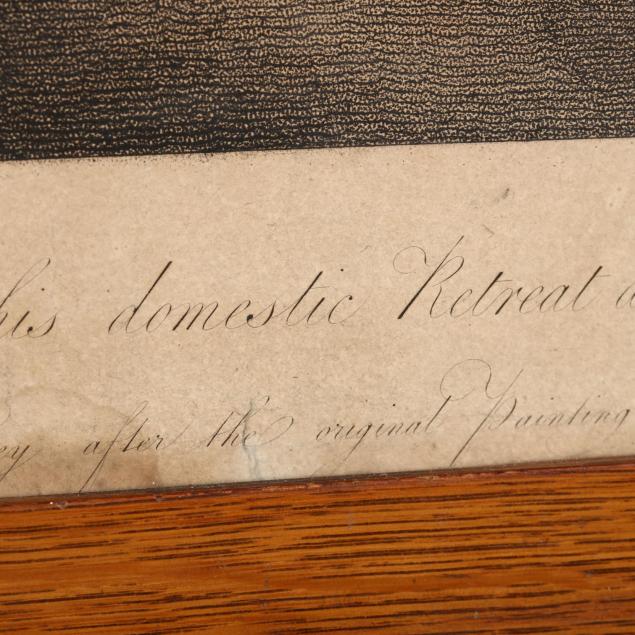 his domestic Retreat a
ey after the original Painting